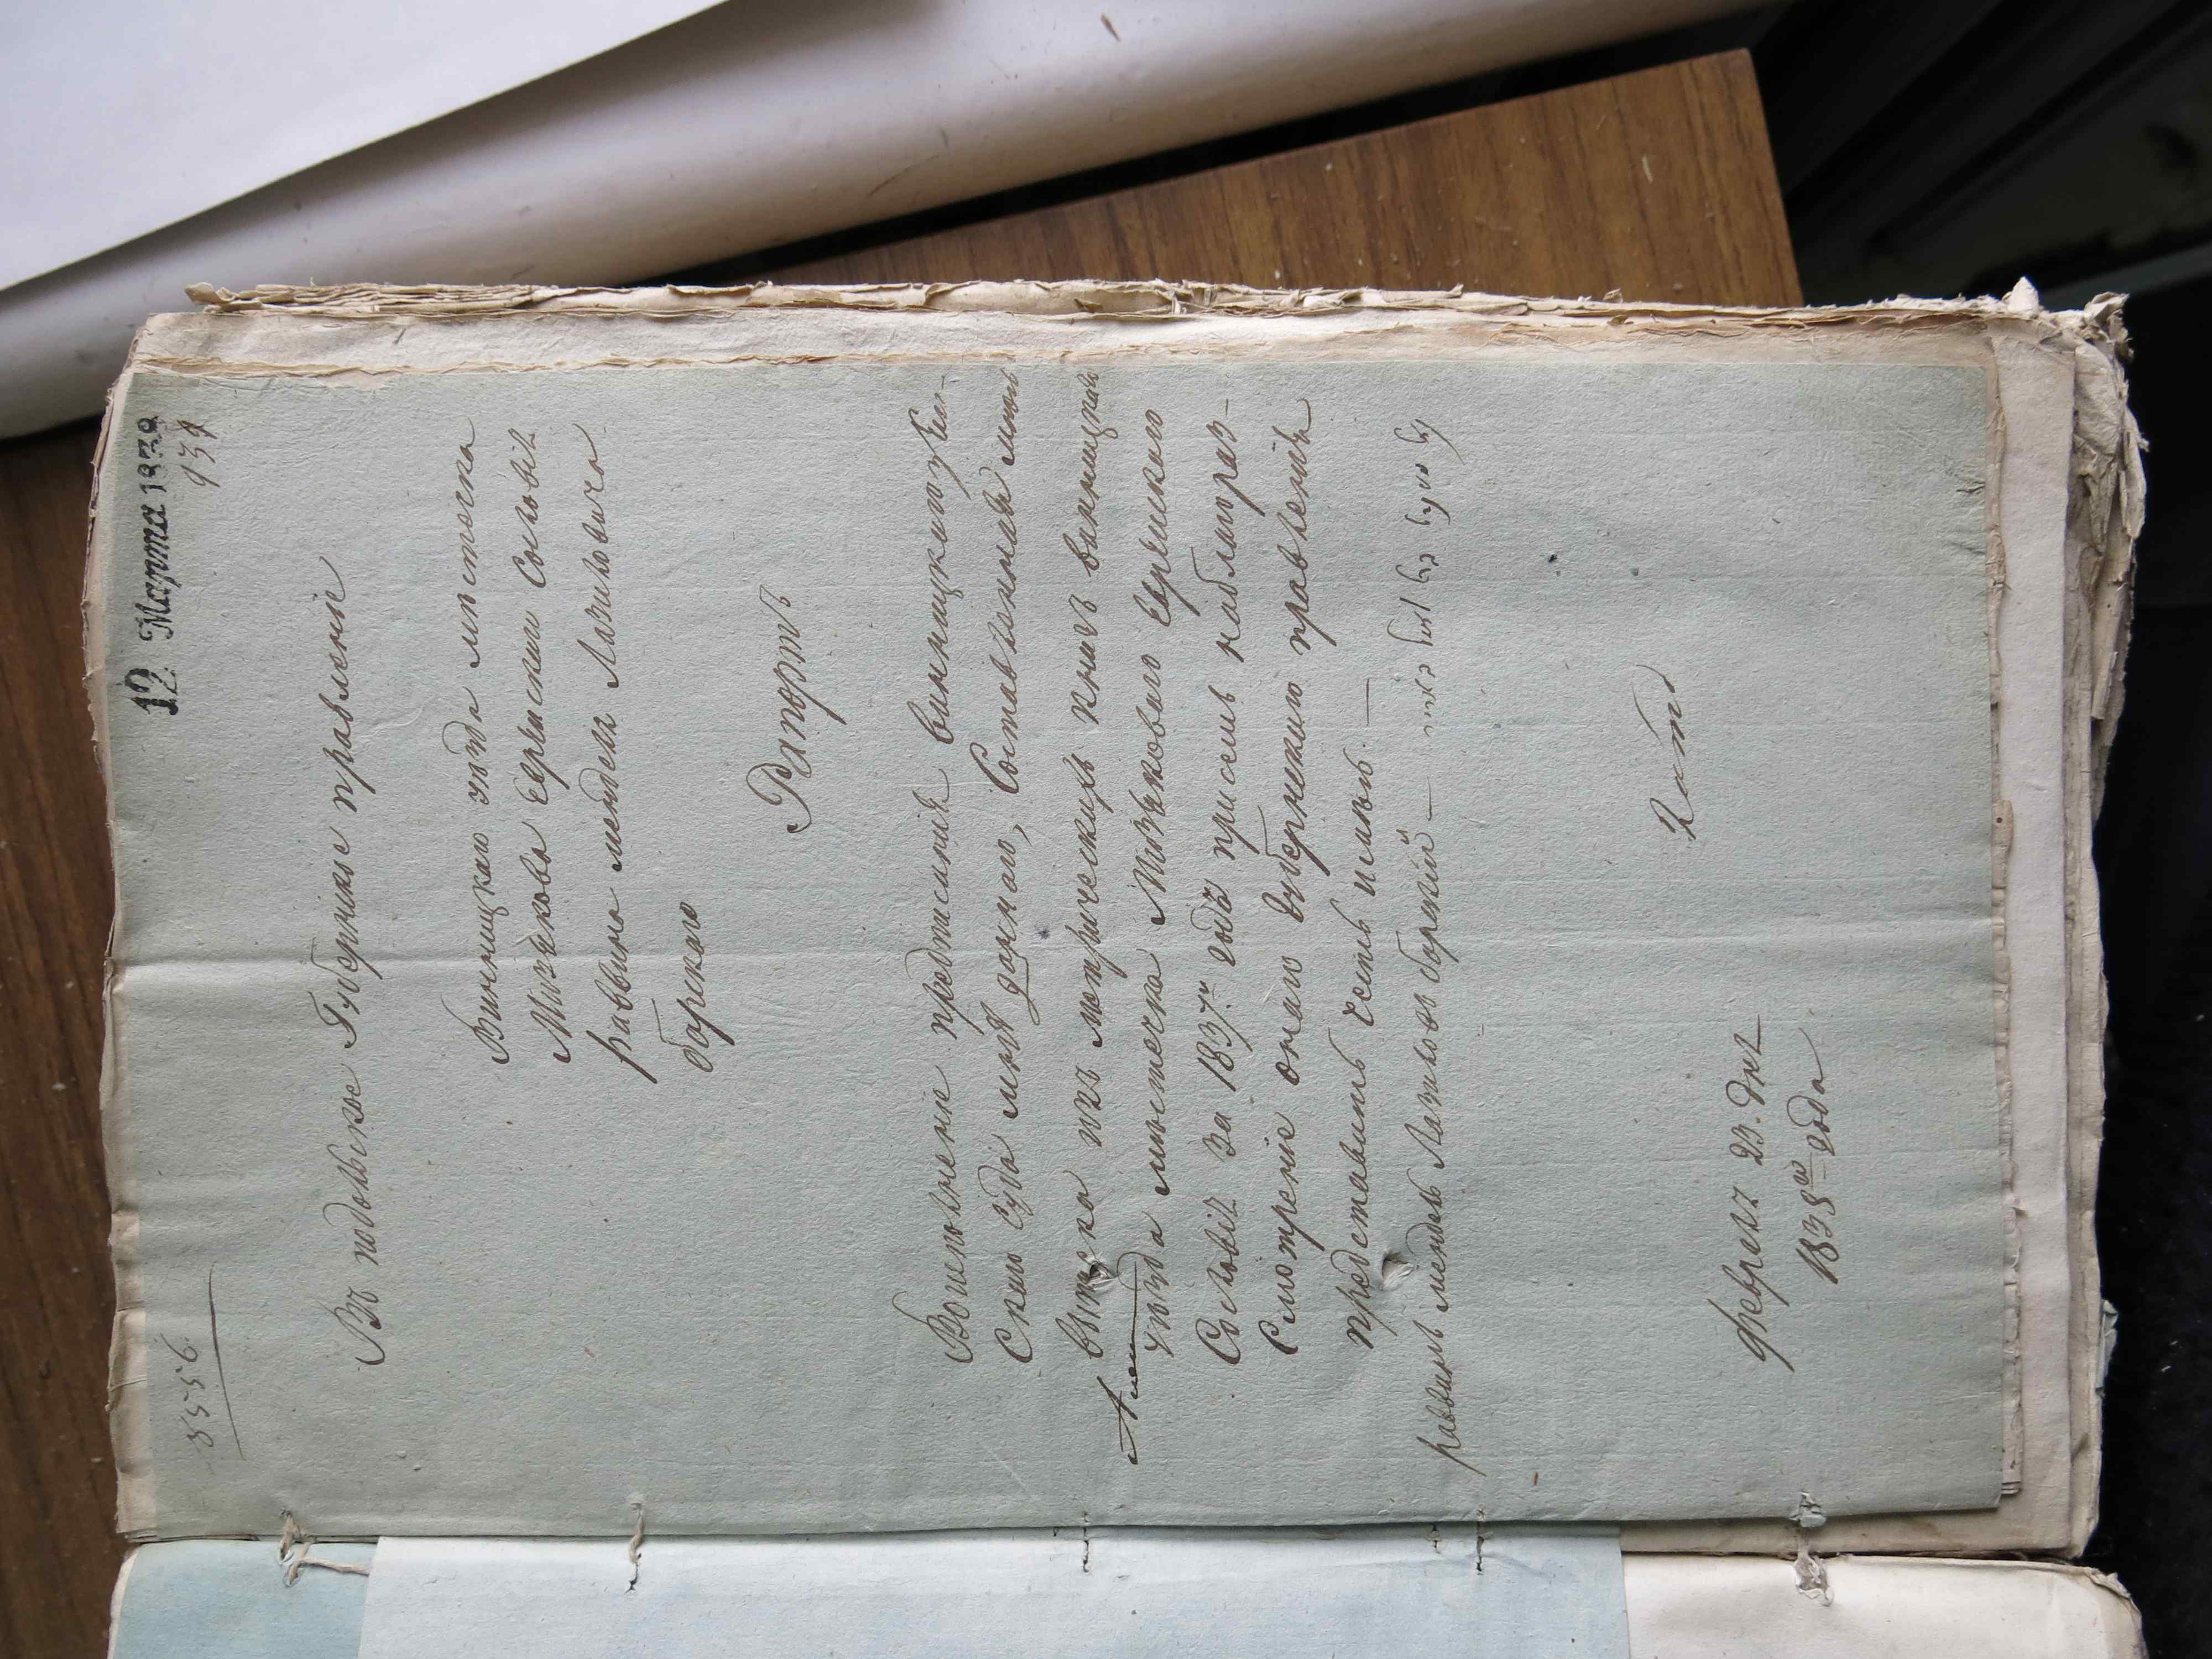 12 Марта 1838
934
8556.
Въ подольское Губернское правление
Винницкаго уезда местечка
Мизякова Еврейскои Сословія
раввина менделя Лазиковича
борского
Рапортъ
Воисполнение предписания винницкого уезд-
Скаго Суда мне данного, Составленная мною
выписка изъ метрическихъ книгъ винницкаго
уезда местечка Мизякового Еврейского
Сословія за 1837й годъ присемъ наблагораз-
Смотрение оного Губернскаго правления
представить Честь имеюъ. —
раввинъ мендель Лазиковъ борский —
февраля 23. дня
1838го года